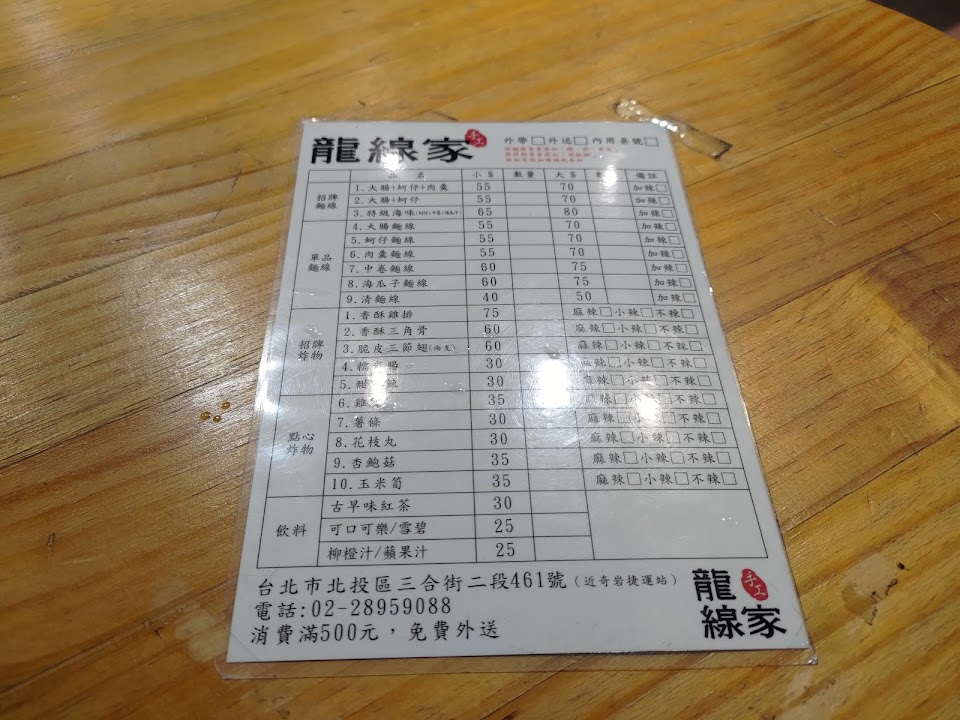 龍線家 手工 外帶□ 外送□ 內用桌號□
品名 小份 數量 大份 備註
招牌麵線
1.大腸+蚵仔+肉羹 55 70 加辣□
2.大腸+蚵仔 55 70 加辣□
3.特級海味 65 80 加辣□
單品麵線
4.大腸麵線 55 70 加辣□
5.蚵仔麵線 55 70 加辣□
6.肉羹麵線 55 70 加辣□
7.中卷麵線 60 75 加辣□
8.海瓜子麵線 60 75 加辣□
9.清麵線 40 50 加辣□
招牌炸物
1.香酥雞排 75 麻辣□小辣□不辣□
2.香酥三角骨 60 麻辣□小辣□不辣□
3.脆皮三節翅(兩支) 60 麻辣□小辣□不辣□
4. 腸 30 麻辣□小辣□不辣□
5.甜 辣 30 麻辣□小辣□不辣□
點心炸物
6.雞 35 麻辣□小辣□不辣□
7.薯條 30 麻辣□小辣□不辣□
8.花枝丸 30 麻辣□小辣□不辣□
9.杏鮑菇 35 麻辣□小辣□不辣□
10.玉米筍 35 麻辣□小辣□不辣□
飲料
古早味紅茶 30
可口可樂/雪碧 25
柳橙汁/蘋果汁 25
台北市北投區三合街二段461號(近奇岩捷運站)
電話:02-28959088
消費滿500元，免費外送
龍線家 手工